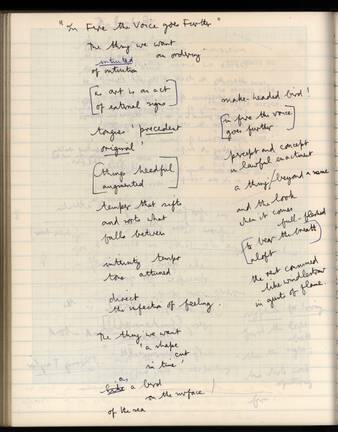 "In Fire the Voice goes Further"
The thing we want
intuited an ordering
of intuition
[a art is an act
of external signs]
tongues' precedent
original'
[things heedful
augmented]
temper that sifts
and sorts what
falls between
intensity temper
tone attuned
direct
the infection of feeling.
The thing we want
'a shape
cut
in time'
a
a bird
on the surface /
of the sea
snake-headed bird!
[in fire the voice
goes further]
precept and concept
in lawful enactment
a thing / beyond a name
and the look
when it comes
full-fledged
[to bear the breath]
aloft
the rest consumed
like windletter
in ignite of flame.